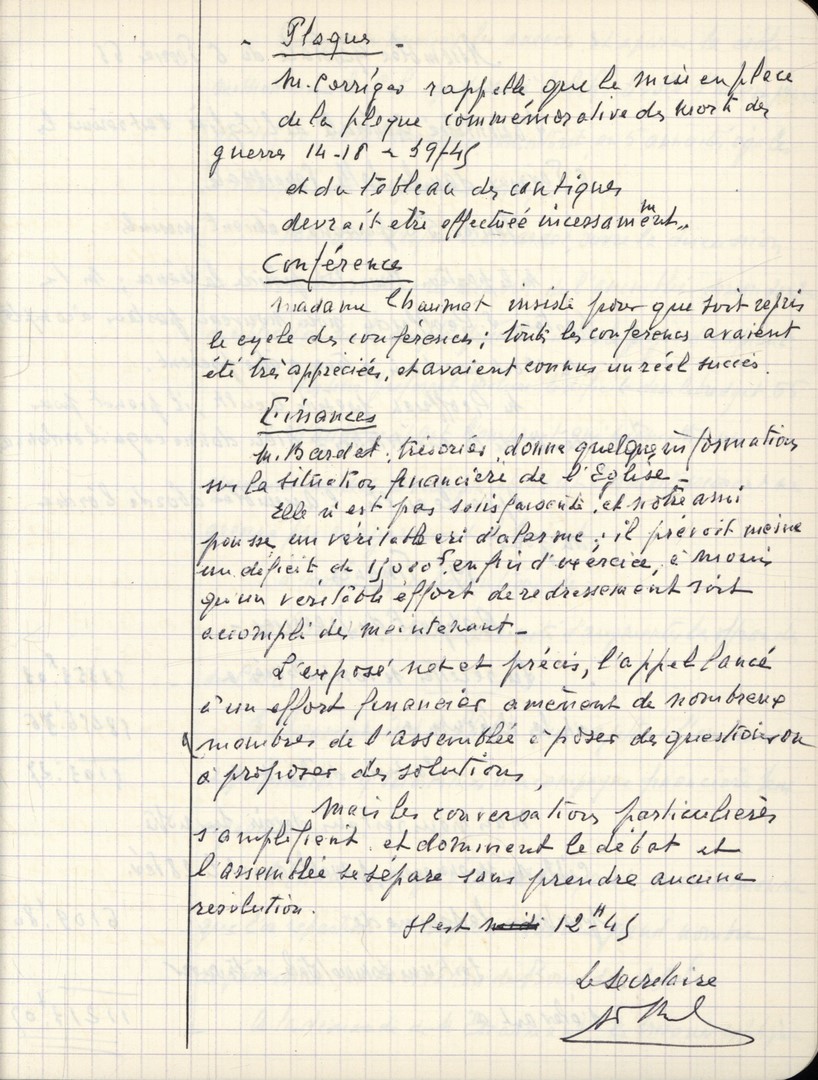 - Plaque -
M. Corriger rappelle que le mise en place
de la plaque commémorative des morts des
guerres 14-18 - 39/45
et du tableau des cantiques
devrait etre effectuée incessament.
Conférence
Madame Chaumat insiste pour que soit repris
le cycle des conférences ; toutes les conférences avaient
été très appréciées, et avaient connus un réel succès.
Finances
M. Bardet, trésorier, donne quelques informations
sur la situation financière de l'Eglise -
Elle n'est pas satisfaisante, et notre ami
pousse un véritable cri d'alarme ; il prévoit même
un déficit de 15000f. en fin d'exercice, à moins
qu'un véritable effort de redressement soit
accompli dès maintenant -
L'exposé net et précis, l'appel lancé
à un effort financier amènent de nombreux
membres de l'assemblée à poser des questions ou
à proposer des solutions,
Mais les conversations particulières
s'amplifient et dominent le débat et
l'assemblée se sépare sans prendre aucune
résolution.
Il est midi 12H45
Le secrétaire